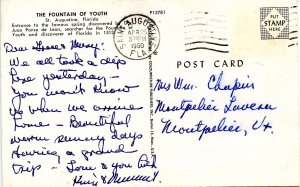 THE FOUNTAIN OF YOUTH
St. Augustine, Florida
P15781
Entrance to the famous spring discovered by
Juan Ponce de Leon, searcher for the Fountain
of Youth
ST. AUGUSTINE
APR 2
1960
FLA.
PLACE
STAMP
HERE
POST CARD
We all took a dip
here yesterday –
You won't know
us when we arrive
home – Beautiful
warm sunny days
Having a grand
trip – Love to you both
Mrs Wm. Chapin
Montpelier Tavern
Montpelier, Vt.